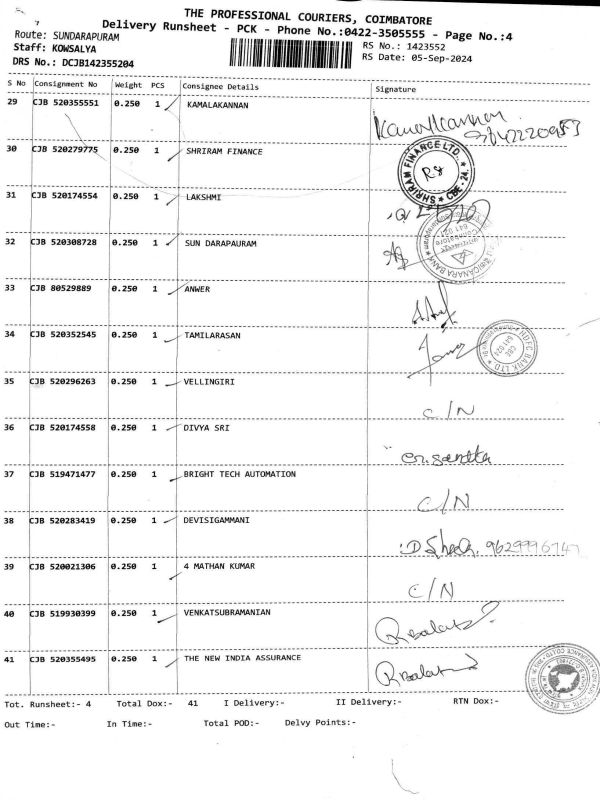 THE PROFESSIONAL COURIERS, COIMBATORE
Delivery Runsheet - PCK - Phone No.:0422-3505555 - Page No.:4
Route: SUNDARAPURAM
RS No.: 1423552
Staff: KOWSALYA
RS Date: 05-Sep-2024
DRS No.: DCJB142355204
S No Consignment No Weight PCS Consignee Details Signature
29 CJB 520355551 0.250 1 KAMALAKANNAN
30 CJB 520279775 0.250 1 SHRIRAM FINANCE
SHRIRAM FINANCE LTD. CBE - 24
31 CJB 520174554 0.250 1 LAKSHMI
32 CJB 520308728 0.250 1 SUN DARAPAURAM
CANARA BANK
33 CJB 80529889 0.250 1 ANWER
34 CJB 520352545 0.250 1 TAMILARASAN
HDFC BANK LTD
35 CJB 520296263 0.250 1 VELLINGIRI
C/N
36 CJB 520174558 0.250 1 DIVYA SRI
37 CJB 519471477 0.250 1 BRIGHT TECH AUTOMATION
C/N
38 CJB 520283419 0.250 1 DEVISIGAMMANI
39 CJB 520021306 0.250 1 4 MATHAN KUMAR
C/N
40 CJB 519930399 0.250 1 VENKATSUBRAMANIAN
41 CJB 520355495 0.250 1 THE NEW INDIA ASSURANCE
Tot. Runsheet:- 4 Total Dox:- 41 I Delivery:- II Delivery:- RTN Dox:-
Out Time:- In Time:- Total POD:- Delvy Points:-